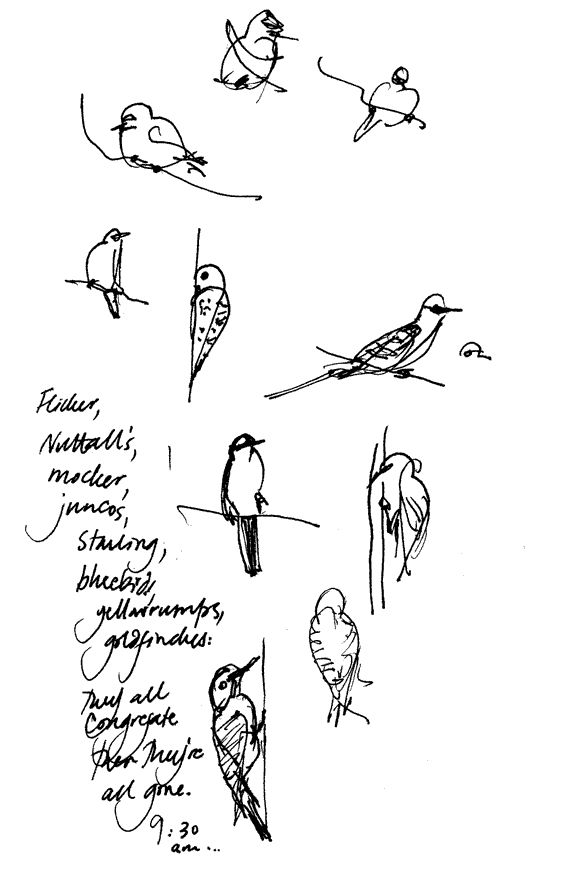 Flicker,
Nuttall's,
mocker,
juncos,
Starling,
bluebird,
yellowrumps,
goldfinches:
They all
Congregate
then They're
all gone.
9:30
am...